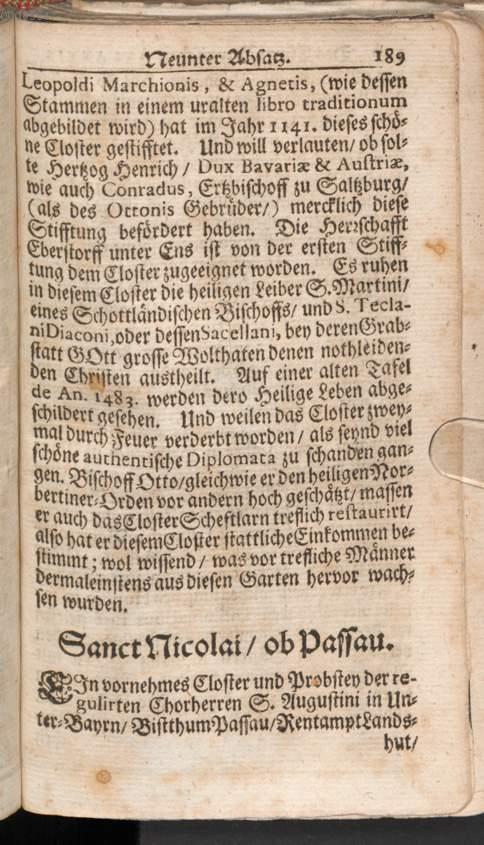 Neunter Absatz. 189
Leopoldi Marchionis, & Agnetis, (wie dessen
Stammen in einem uralten libro traditionum
abgebildet wird) hat im Jahr 1141. dieses schö-
ne Closter gestifftet. Und will verlauten/ ob sol-
te Hertzog Henrich / Dux Bavariæ & Austriæ,
wie auch Conradus, Ertzbischoff zu Saltzburg/
(als des Ottonis Gebrüder/) mercklich diese
Stifftung befördert haben. Die Herrschafft
Eberstorff unter Ens ist von der ersten Stiff-
tung dem Closter zugeeignet worden. Es ruhen
in diesem Closter die heiligen Leiber S. Martini/
eines Schottländischen Bischoffs/ und S. Tecla-
ni Diaconi, oder dessen Sacellani, bey deren Grab-
statt GOtt grosse Wolthaten denen nothleiden-
den Christen austheilt. Auf einer alten Tafel
de An. 1483. werden dero Heilige Leben abge-
schildert gesehen. Und weilen das Closter zwey-
mal durch Feuer verderbt worden / als seynd viel
schöne authentische Diplomata zu schanden gan-
gen. Bischoff Otto/ gleichwie er den heiligen Nor-
bertiner-Orden vor andern hoch geschätzt/ massen
er auch das Closter Scheftlarn treflich restaurirt/
also hat er diesem Closter stattliche Einkommen be-
stimmt; wol wissend / was vor trefliche Männer
dermaleinstens aus diesen Garten hervor wach-
sen wurden.
Sanct Nicolai / ob Passau.
EIn vornehmes Closter und Probstey der re-
gulirten Chorherren S. Augustini in Un-
ter-Bayrn/ Bistthum Passau/ Rentampt Lands-
hut/